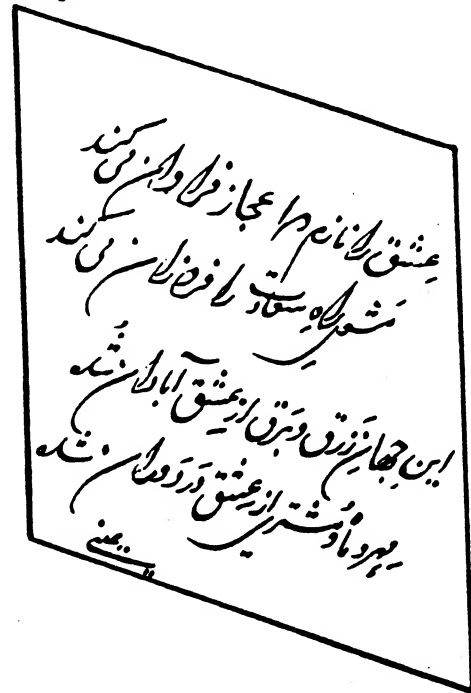 عِشق را نازم مرا اعجاز فراوان می‌کند
مشعلِ راهِ سعادت را فروزان می‌کند
این جهانِ زرق و برق از عِشق آبادان شُده
مِهر و ماه و مُشتری از عِشق در دوران شده